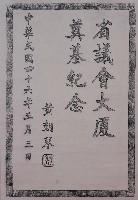 省議會大廈
奠基紀念
黃朝琴
中華民國四十六年三月三日